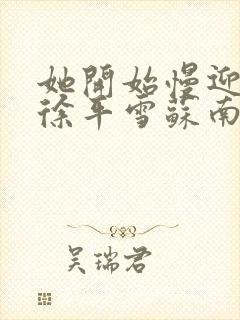 她開始慢迎
徐平雪蘇南
吴瑞君